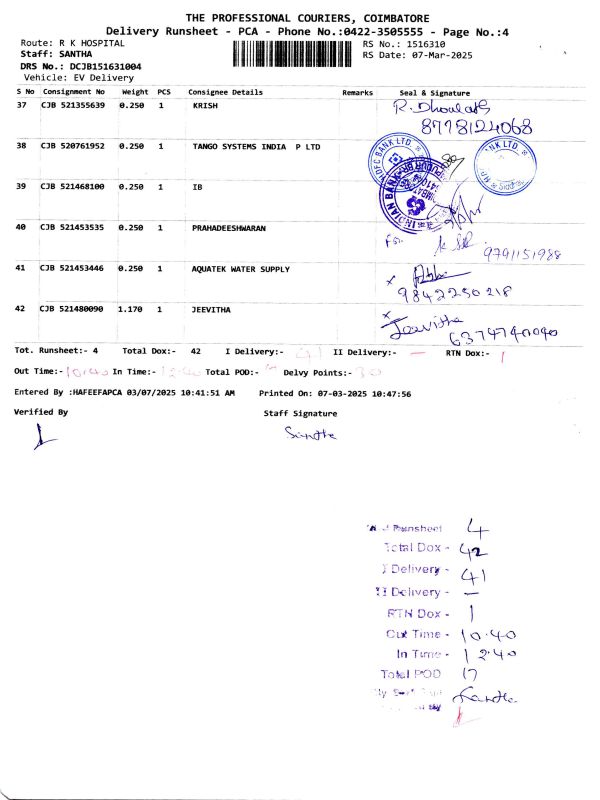 THE PROFESSIONAL COURIERS, COIMBATORE
Delivery Runsheet - PCA - Phone No.:0422-3505555 - Page No.:4
Route: R K HOSPITAL
RS No.: 1516310
Staff: SANTHA
RS Date: 07-Mar-2025
DRS No.: DCJB151631004
Vehicle: EV Delivery
S No Consignment No Weight PCS Consignee Details Remarks Seal & Signature
37 CJB 521355639 0.250 1 KRISH
8778124068
38 CJB 520761952 0.250 1 TANGO SYSTEMS INDIA P LTD
39 CJB 521468100 0.250 1 IB
40 CJB 521453535 0.250 1 PRAHADEESHWARAN
9791151988
41 CJB 521453446 0.250 1 AQUATEK WATER SUPPLY
9842250218
42 CJB 521480090 1.170 1 JEEVITHA Jeevitha
Tot. Runsheet:- 4 Total Dox:- 42 I Delivery:- 41 II Delivery:- — RTN Dox:- 1
Out Time:- 10.40 In Time:- 12.40 Total POD:- Delvy Points:- 30
Entered By :HAFEEFAPCA 03/07/2025 10:41:51 AM Printed On: 07-03-2025 10:47:56
Verified By Staff Signature
Santha
Runsheet 4
Total Dox - 42
I Delivery - 41
II Delivery - —
RTN Dox - 1
Out Time - 10.40
In Time - 12.40
Total POD 17
Santha